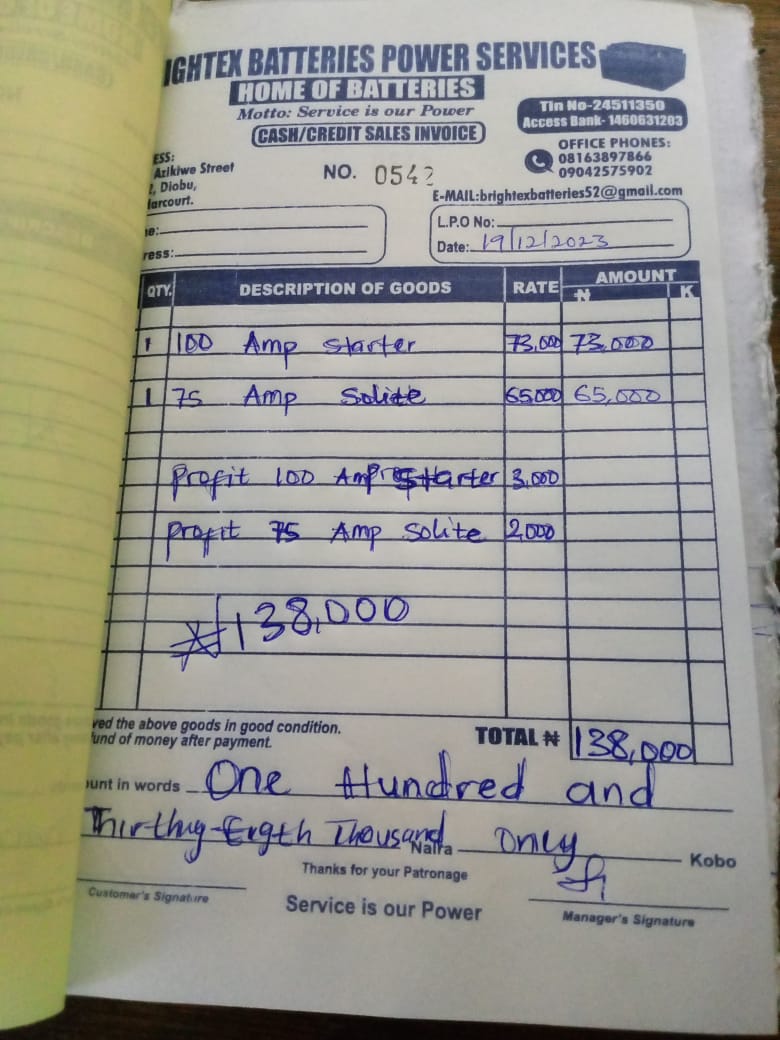 IGHTEX BATTERIES POWER SERVICES
HOME OF BATTERIES
Motto: Service is our Power
CASH/CREDIT SALES INVOICE
Tin No-24511350
Access Bank- 1460631203
OFFICE PHONES:
08163897866
09042575902
ESS:
Azikiwe Street
2, Diobu,
arcourt.
NO. 0542
E-MAIL:brightexbatteries52@gmail.com
e:
ress:
L.P.O No:
Date: 19/12/2023
QTY. DESCRIPTION OF GOODS RATE AMOUNT
₦ K
1 100 Amp Starter 73,000 73,000
1 75 Amp Solite 65000 65,000
Profit 100 Amp Starter 3,000
Profit 75 Amp Solite 2,000
₦138,000
ved the above goods in good condition.
fund of money after payment.
TOTAL ₦ 138,000
unt in words One Hundred and
Thirthy-Eigth Thousand Naira Only Kobo
Thanks for your Patronage
Customer's Signature
Service is our Power
Manager's Signature